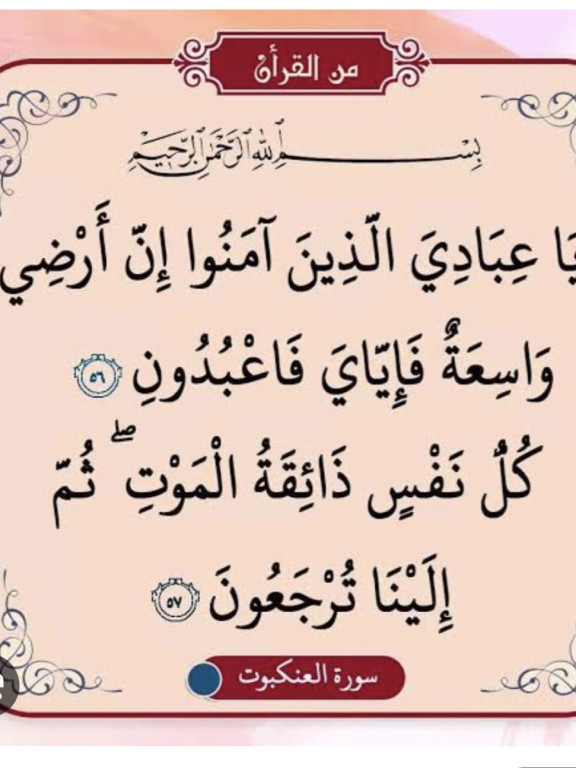 من القرأن
بِسْمِ ٱللَّهِ ٱلرَّحْمَٰنِ ٱلرَّحِيمِ
يَا عِبَادِيَ الَّذِينَ آمَنُوا إِنَّ أَرْضِي
وَاسِعَةٌ فَإِيَّايَ فَاعْبُدُونِ ٥٦
كُلُّ نَفْسٍ ذَائِقَةُ الْمَوْتِ ۖ ثُمَّ
إِلَيْنَا تُرْجَعُونَ ٥٧
سورة العنكبوت